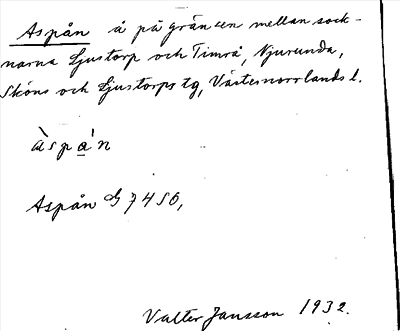 Aspån å på gränsen mellan sock-
narna Ljustorp och Timrå, Njurunda,
Sköns och Ljustorps tg, Västernorrlands l.
àspa̲´n
Aspån GS 7450,
Valter Jansson 1932.